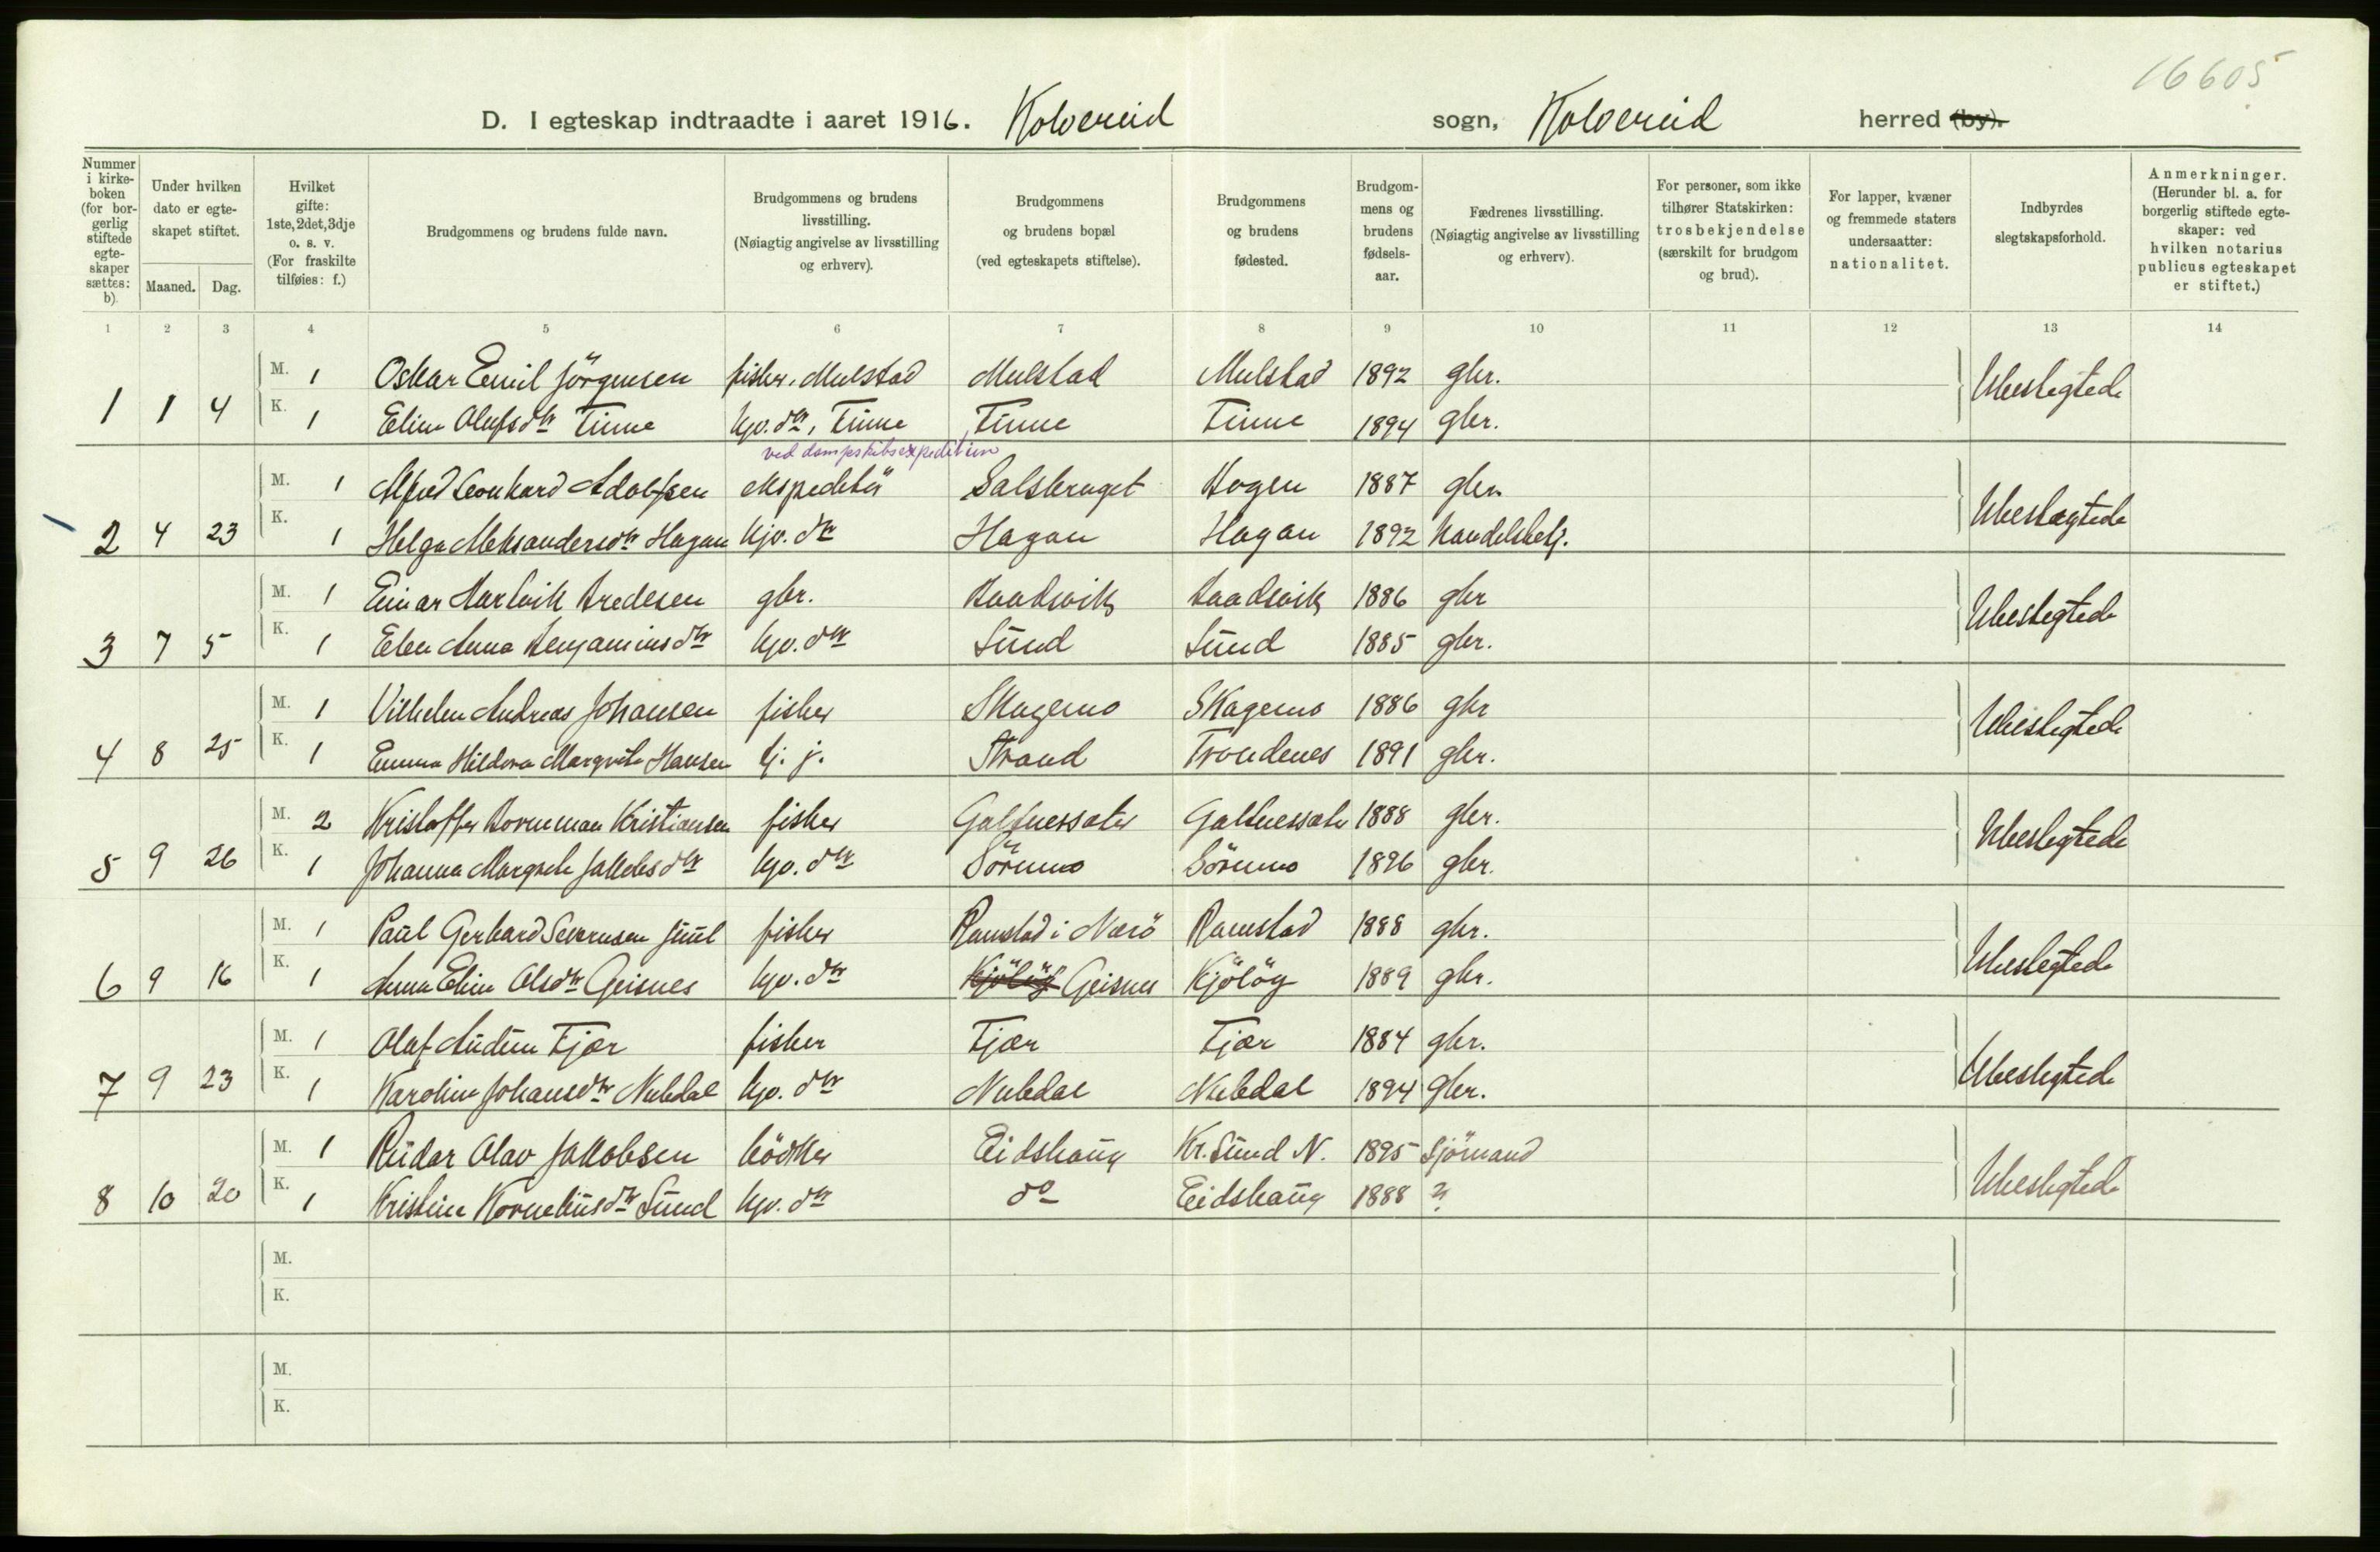 16605
D. I egteskap indtraadte i aaret 1916. Kolvereid sogn, Kolvereid herred (by).
Nummer i kirke-boken (for bor-gerlig stiftede egte-skaper sættes: b).
Under hvilken dato er egte-skapet stiftet.
Maaned. Dag.
Hvilket gifte: 1ste, 2det, 3dje o. s. v. (For fraskilte tilføies: f.)
Brudgommens og brudens fulde navn.
Brudgommens og brudens livsstilling. (Nøiagtig angivelse av livsstilling og erhverv).
Brudgommens og brudens bopæl (ved egteskapets stiftelse).
Brudgommens og brudens fødested.
Brudgom-mens og brudens fødsels-aar.
Fædrenes livsstilling. (Nøiagtig angivelse av livsstilling og erhverv).
For personer, som ikke tilhører Statskirken: trosbekjendelse (særskilt for brudgom og brud).
For lapper, kvæner og fremmede staters undersaatter: nationalitet.
Indbyrdes slegtskapsforhold.
Anmerkninger. (Herunder bl. a. for borgerlig stiftede egte-skaper: ved hvilken notarius publicus egteskapet er stiftet.)
1 2 3 4 5 6 7 8 9 10 11 12 13 14
M. 1 Oskar Emil Jörgensen fisker, Mulstad Mulstad Mulstad 1892 gbr. Ubeslegtede
1 1 4 K. 1 Eline Olufsdtr Finne hjv. dtr, Finne Finne Finne 1894 gbr.
ved dampskibsexpedition
M. 1 Alfred Leonhard Adolfsen ekspeditör Salsbruget Hogen 1887 gbr. Ubeslægtede
2 4 23 K. 1 Helga Aleksandersdtr Hagan hjv. dtr Hagan Hagan 1892 Handelsbetj.
M. 1 Einar Hartvik Bredesen gbr. Baadsvik Baadsvik 1886 gbr Ubeslegtede
3 7 5 K. 1 Elen Anna Benjaminsdtr hjv. dtr Sund Sund 1885 gbr.
M. 1 Vilhelm Andreas Johansen fisker Skagemo Skagemo 1886 gbr Ubeslegtede
4 8 25 K. 1 Emma Hildora Margrete Hansen tj. j. Strand Trondenes 1891 gbr.
M. 2 Kristoffer Borneman Kristiansen fisker Galtnessæter Galtnessæter 1888 gbr. Ubeslegtede
5 9 26 K. 1 Johanna Margrete Jakobsdtr hjv. dtr Sörmo Sörmo 1896 gbr.
M. 1 Paul Gerhard Severinsen Juul fisker Ramstad i Nærö Ramstad 1888 gbr. Ubeslegtede
6 9 16 K. 1 Anna Eline Olsdtr Geisnes hjv. dtr Kjölög Geisnes Kjölög 1889 gbr.
M. 1 Olaf Audun Fjær fisker Fjær Fjær 1884 gbr. Ubeslegtede
7 9 23 K. 1 Karoline Johansdtr Nubdal hjv. dtr Nubdal Nubdal 1894 gbr.
M. 1 Reidar Olav Jakobsen bödker Eidshaug Kr.sund N. 1895 Sjömand Ubeslegtede
8 10 20 K. 1 Kristine Korneliusdtr Sund hjv. dtr do Eidshaug 1888 ?
M.
K.
M.
K.